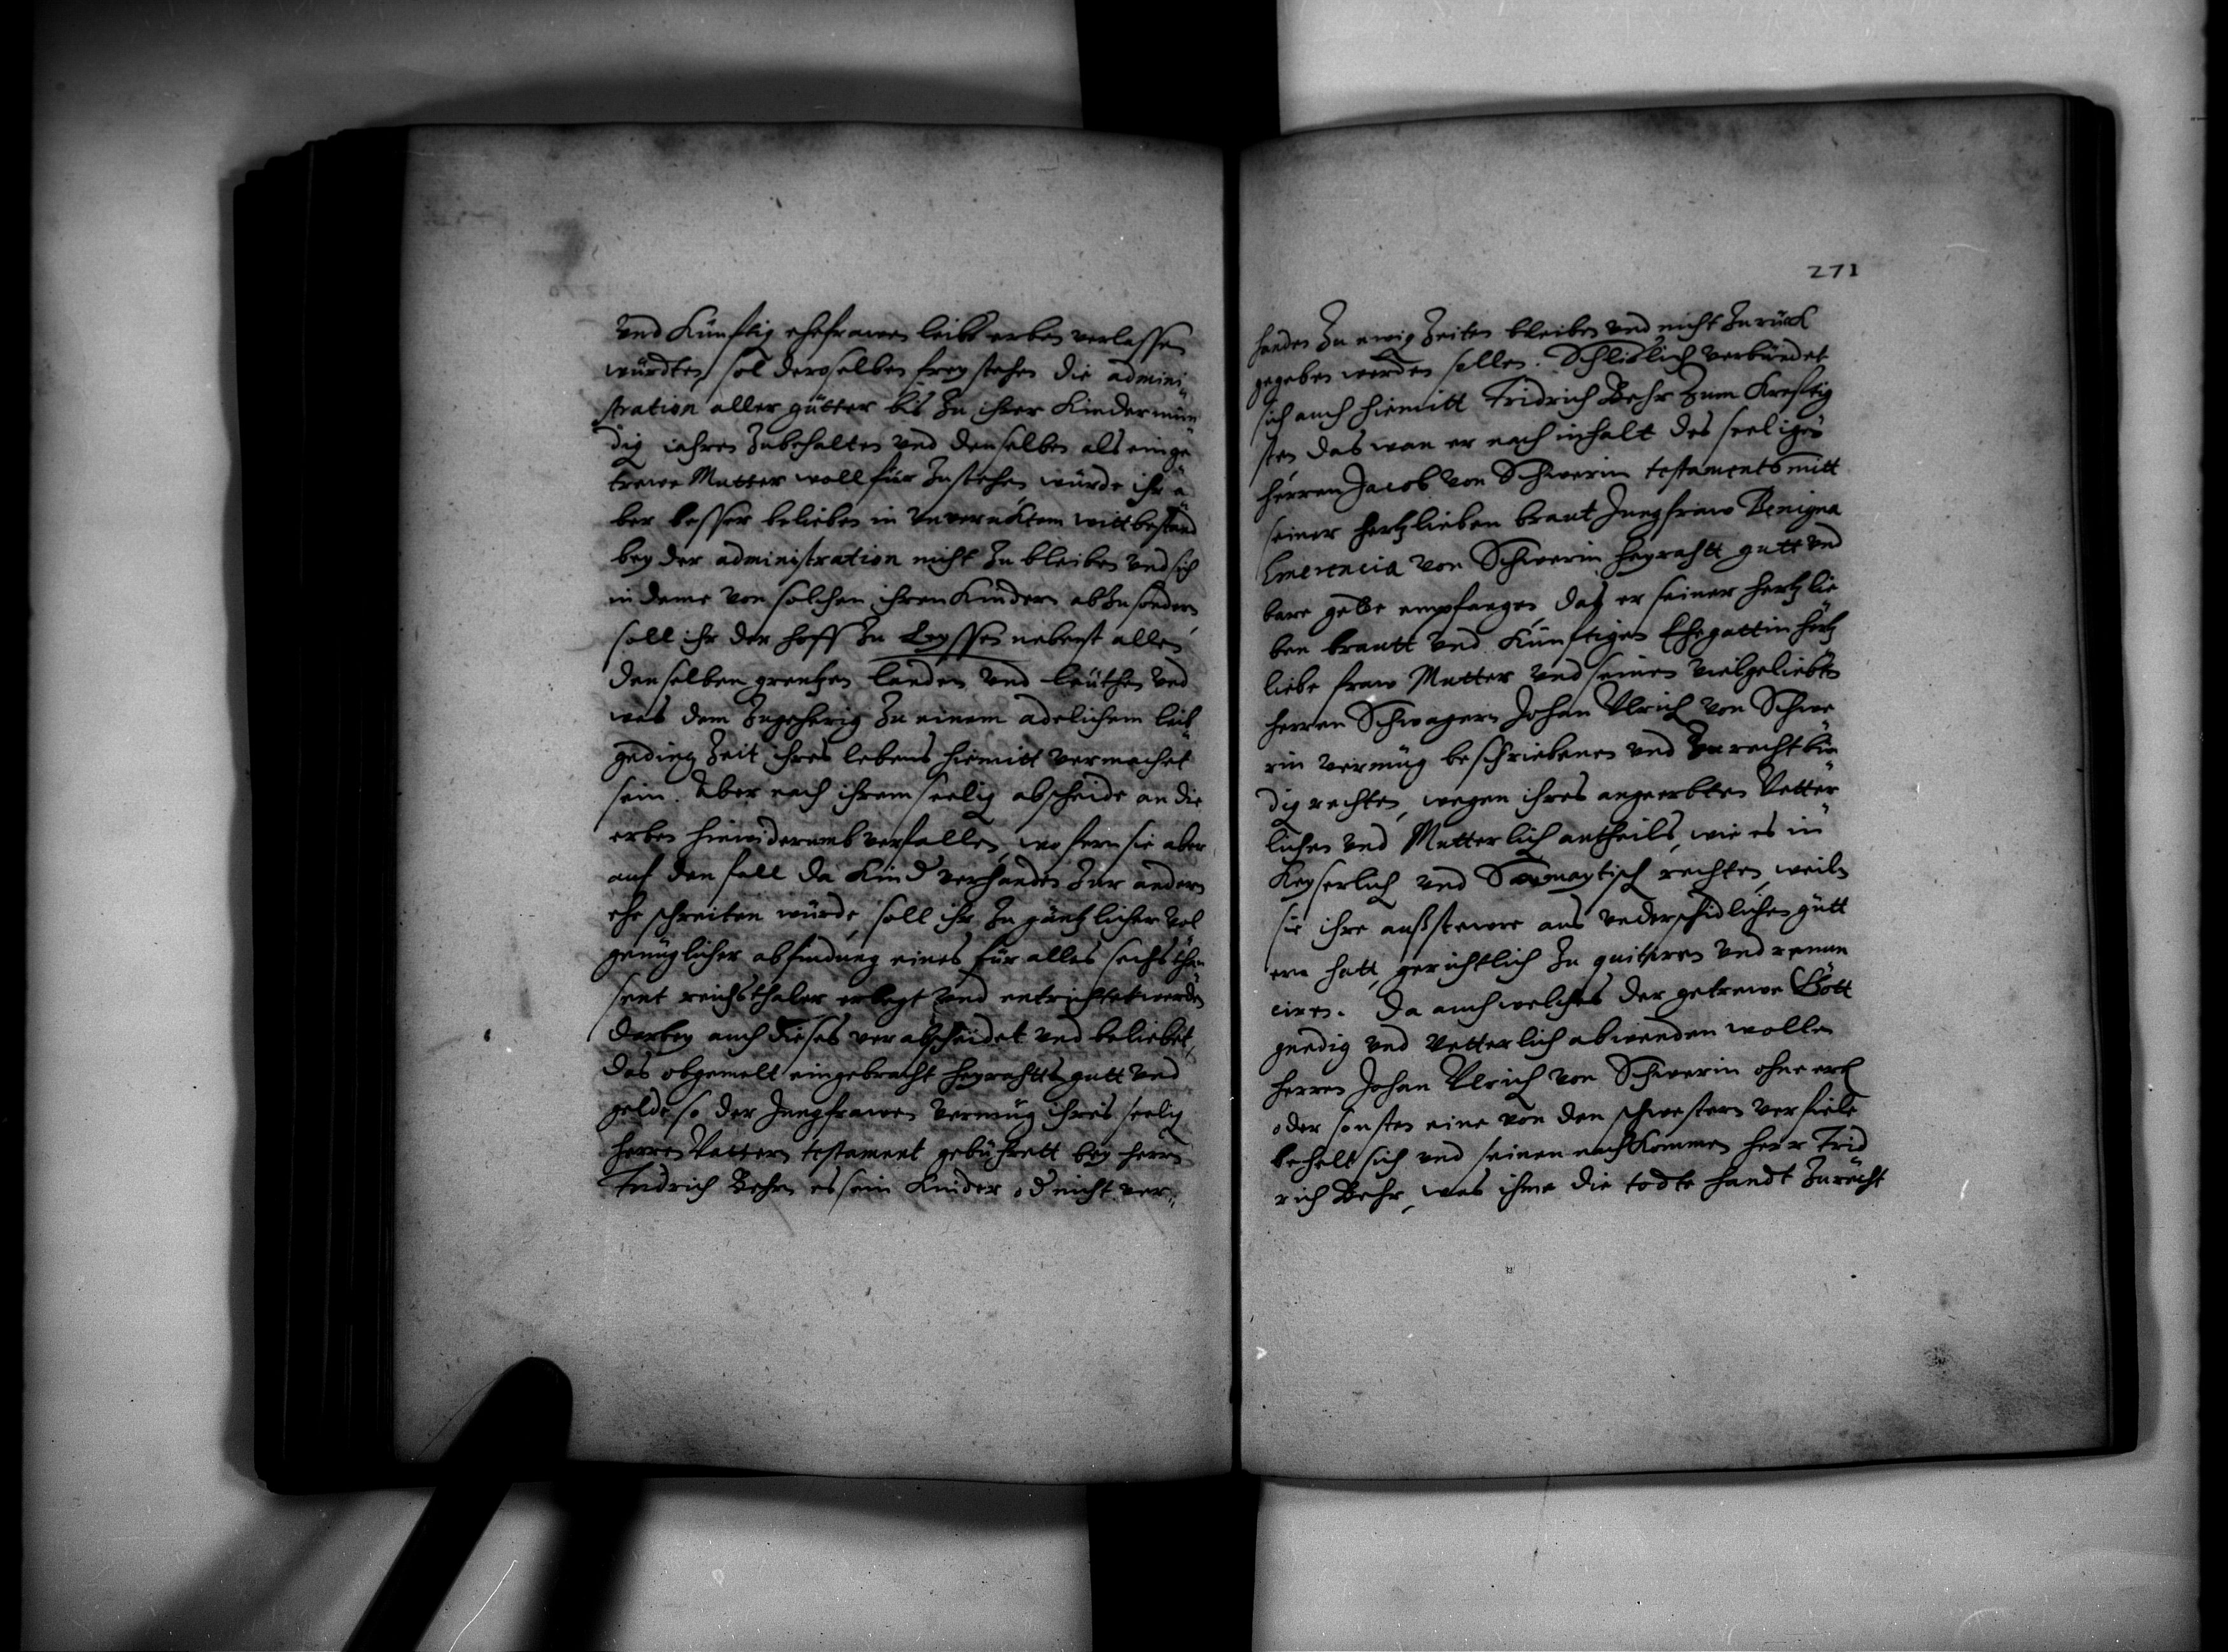 und Künftig ehefrawen leibs erben verlassen
würdten, sol deroselben frey stehen die admini„
stration aller gütter bis Zu ihrer Kinder mün„
dig iahren Zubehalten und denselben als ein ge„
trewe Mutter woll für Zustehen, würde ihr a„
ber besser belieben in unverucktem wittbestand
bey der administration nicht Zu bleiben und sich
in deme von solchen ihren Kindern ab Zusondern,
soll ihr der hoff Zu Leyssen nebenst allen
denselben grentzen landen und leüthen und
was dem Zugehörig Zu einem adelichem leib„
geding Zeit ihres lebens hiemitt vermachet
sein. Aber nach ihrem seelig abscheide an die
erben hinwiderumb verfallen, wofern sie aber
auf den fall da Kind verhanden Zur andern
ehe schreiten würde, soll ihr Zu gäntzlicher vol
genüglicher abfindung eines für alles sechs thau
sent reichsthaler erlegt und entrichtet werden
darbey auch dieses verabscheidet und beliebet,
das obgemelt eingebracht heyrahtts gutt und
gelde so der Jungfrawen vermüg ihres seelig
herren Vattern testament gebührett bey herrn
Fridrich Behrn es sein Kinder od nicht ver„
271
handen Zu ewig Zeiten bleiben und nicht Zurück
gegeben werden sollen. Schlislich verbündet
sich auch hiemitt Fridrich Behr Zum Kreftig
sten das wan er nach inhalt des seeligen
herren Jacob von Schwerin testaments mitt
seiner hertzlieben braut Jungfraw Benigna
Emerencia von Schwerin heyrahtt gutt und
bare gelde empfangen, das er seiner hertzlie
ben brautt und Künftigen Ehegattin hertz
liebe fraw Mutter und seinen vielgeliebten
herren Schwagern Johan Ulrich von Schwe
rin vermüg beschriebenen und Zurecht bün
dig rechten, wegen ihres angeerbten Vetter„
lichen und Mutterlich antheils, wie es in
Keyserlich und Samaytisch rechten, weiln
sie ihre außstewre aus underschidlichen gütt
ern hatt, gerichtlich Zu quitiren und renun
ciren. Da auch welches der getrewe Gott
gnedig und Vetterlich abwenden wolle
herren Johan Ulrich von Schwerin ohne erb
oder sonsten eine von den schwestern verfiele
behelt sich und seinen nachKommen herr Frid
rich Behr, was ihme die todte handt Zurecht